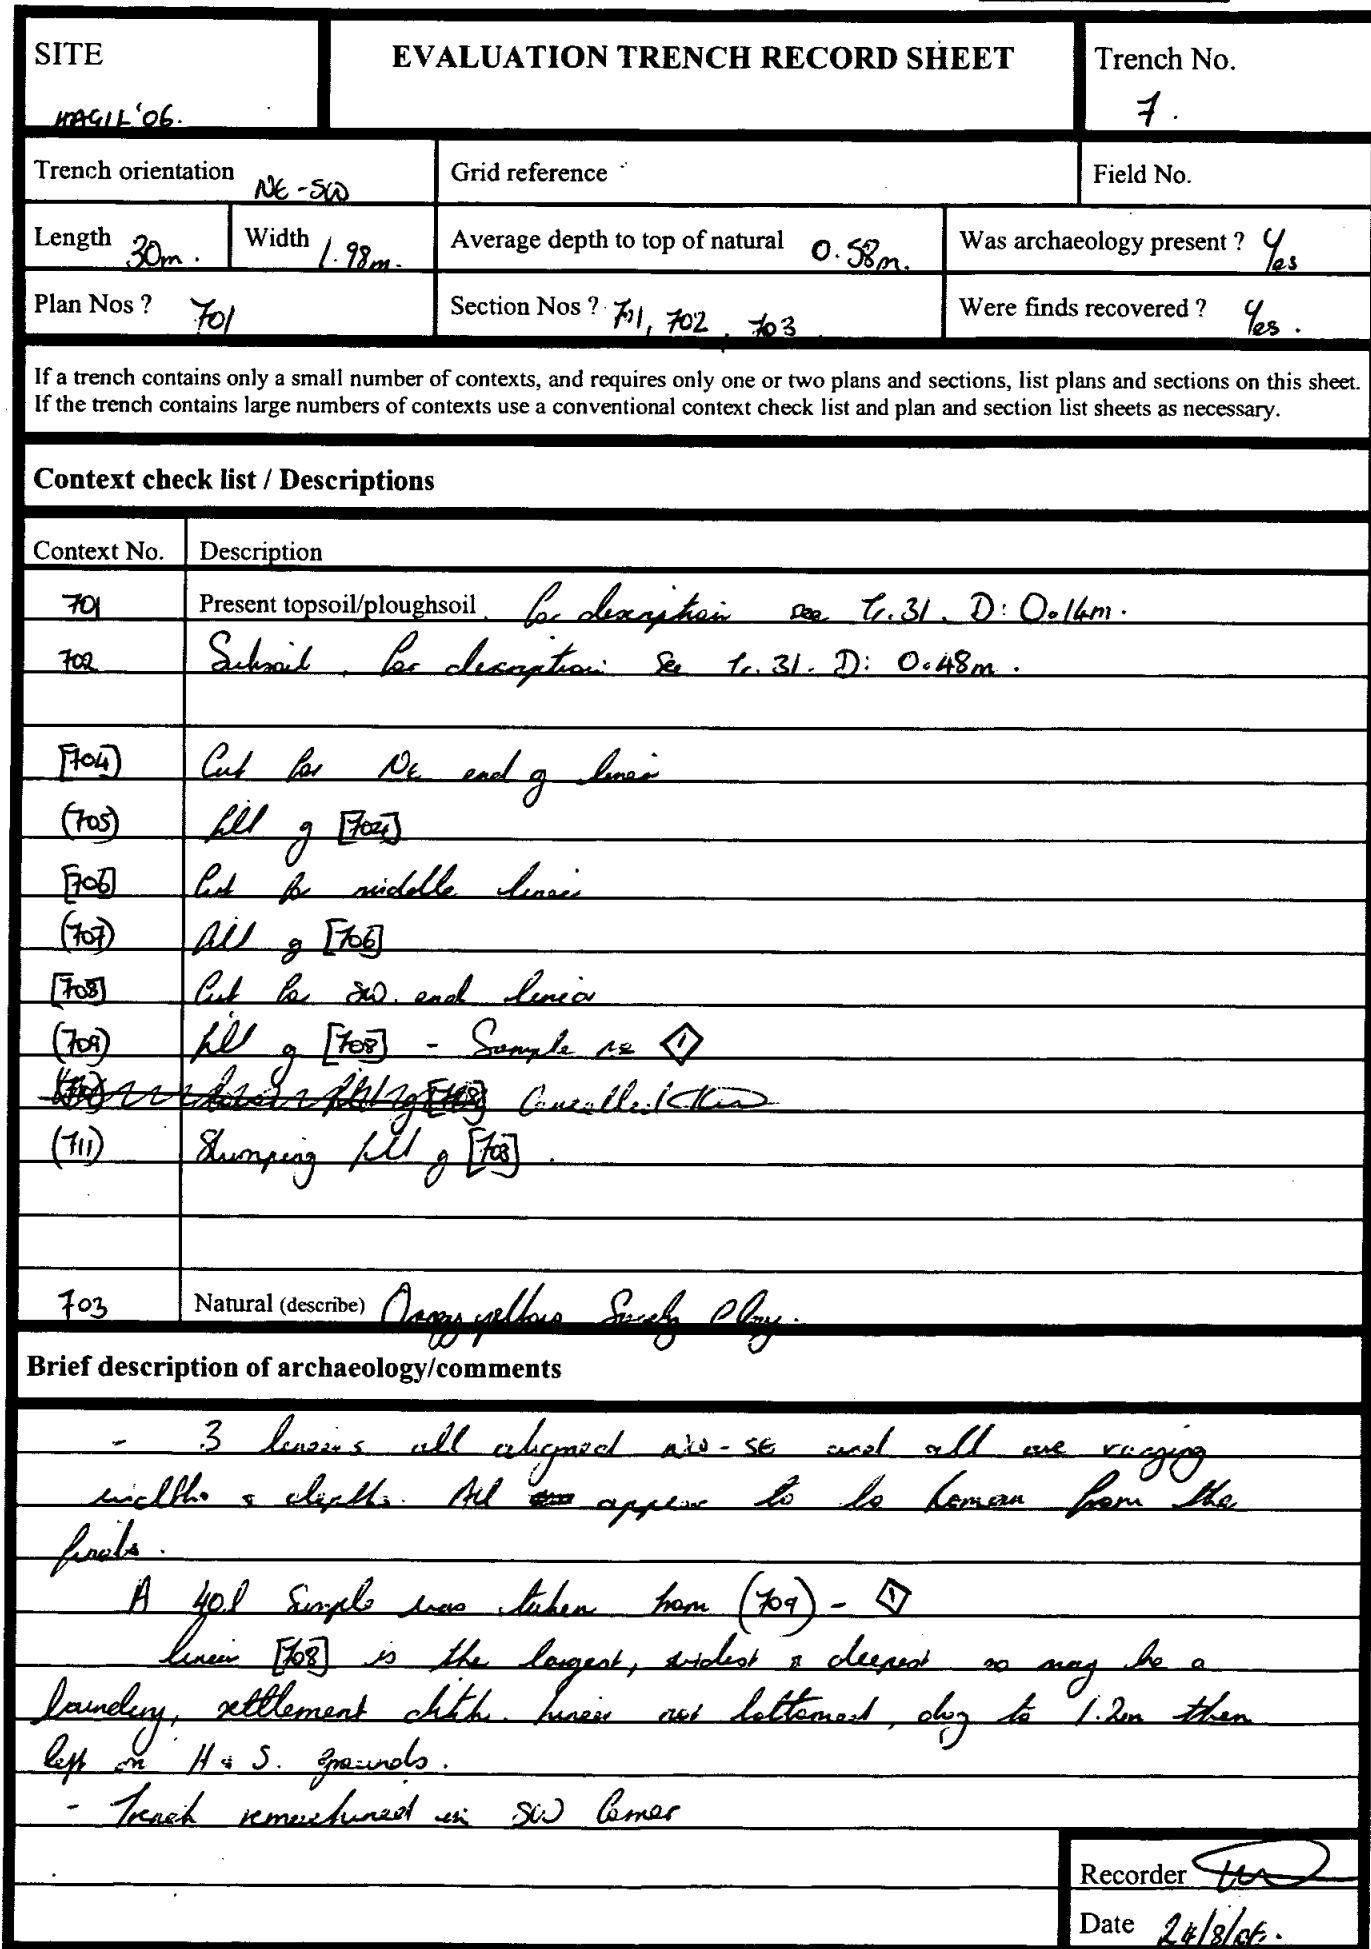 SITE
HAGIL'06.
EVALUATION TRENCH RECORD SHEET
Trench No.
7.
Trench orientation NE-SW
Grid reference
Field No.
Length 30m.
Width 1.98m.
Average depth to top of natural 0.58m.
Was archaeology present ? Yes
Plan Nos ? 701
Section Nos ? 701, 702, 703
Were finds recovered ? Yes.
If a trench contains only a small number of contexts, and requires only one or two plans and sections, list plans and sections on this sheet.
If the trench contains large numbers of contexts use a conventional context check list and plan and section list sheets as necessary.
Context check list / Descriptions
Context No. Description
701 Present topsoil/ploughsoil. for description see Tr.31. D: 0.14m.
702 Subsoil, for description see Tr.31. D: 0.48m.
[704] Cut for NE end of linear
(705) fill of [704]
[706] Cut for middle linear
(707) fill of [706]
[708] Cut for SW. end linear
(709) fill of [708] - Sample no 1
Cancelled
(711) Slumping fill of [708].
703 Natural (describe) Orangy yellow Sandy Clay.
Brief description of archaeology/comments
- 3 linears all aligned NW-SE and all are varying
widths & depths. All appear to be Roman from the
finds.
A 40l Sample was taken from (709) - 1
linear [708] is the largest, widest & deepest so may be a
boundary, settlement ditch. linear not bottomed, dug to 1.2m then
left on H & S. grounds.
- Trench remachined in SW Corner
Recorder
Date 24/8/06.